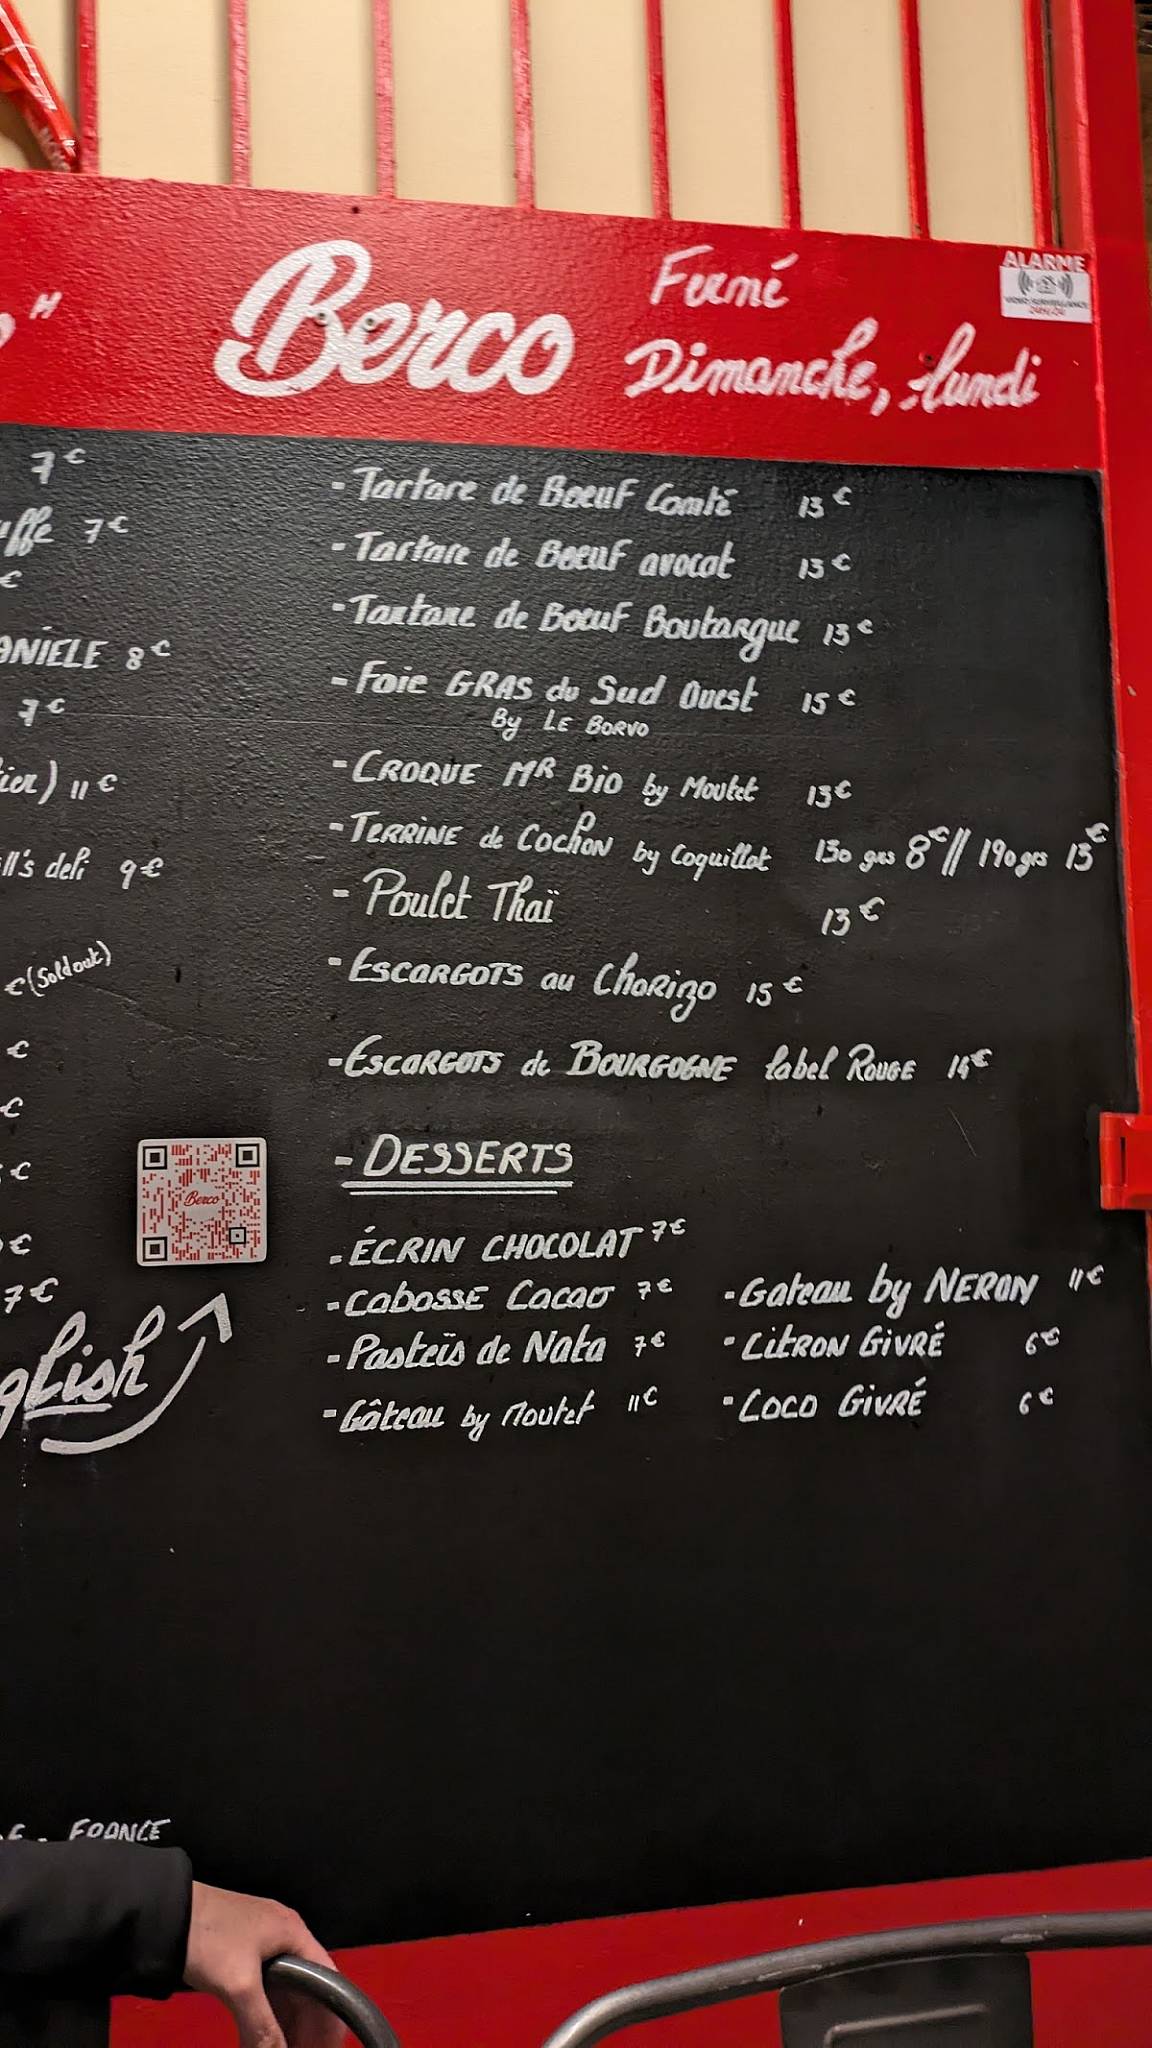 Berco
Fermé
Dimanche, lundi
ALARME
7€
7€
€
8€
7€
11€
deli 9€
€ (Sold out)
€
€
€
€
7€
- Tartare de Boeuf Comté 13€
- Tartare de Boeuf avocat 13€
- Tartare de Boeuf Boutargue 13€
- Foie GRAS du Sud Ouest 15€
By LE BORVO
- CROQUE MR Bio by Moutet 13€
- TERRINE de COCHON by Coquillat 130 grs 8€ // 190 grs 13€
- Poulet Thaï 13€
- ESCARGOTS au Chorizo 15€
- ESCARGOTS de BOURGOGNE label ROUGE 14€
Berco
- DESSERTS
- ÉCRIN CHOCOLAT 7€
- Cabosse Cacao 7€
- Pasteïs de Nata 7€
- Gâteau by Moutet 11€
- Gateau by NERON 11€
- CitRON GIVRÉ 6€
- LOCO GIVRÉ 6€
FRANCE